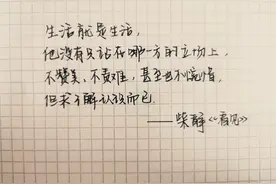 生活就是生活，
他没有只站在哪一方的立场上，
不赞美、不责难，甚至也不惋惜，
但求了解认识而已。
——柴静《看见》